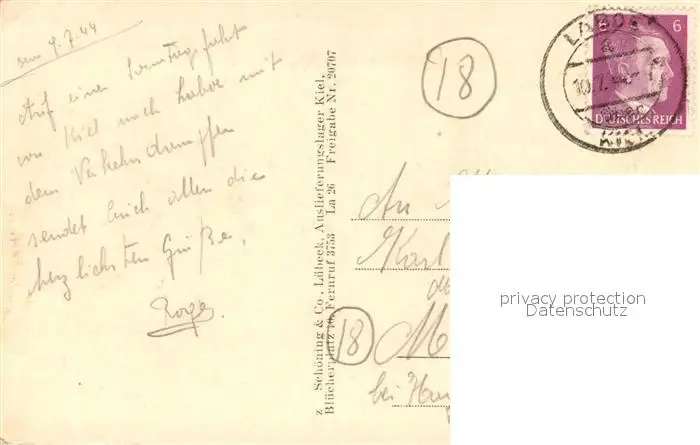 den 9.7.44
Auf einer Sonntagsfahrt
von Kiel nach Laboe mit
dem Verkehrsdampfer
sendet Euch allen die
herzlichsten Grüße,
z. Schöning & Co., Lübeck, Auslieferungslager Kiel,
Blücherplatz 10, Fernruf 3753 La 26 Freigabe Nr. 20707
18
LABOE
6
DEUTSCHES REICH
An
Karl
18
M
bei
privacy protection
Datenschutz